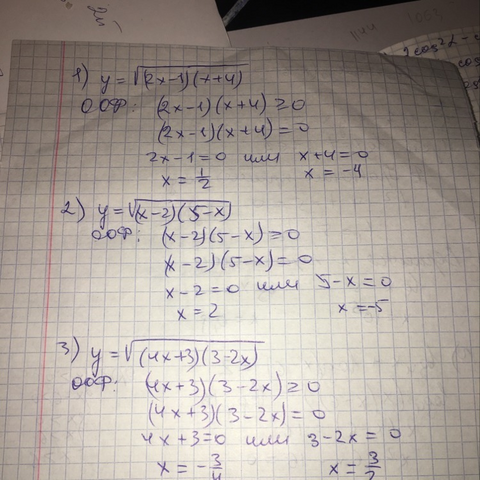 1) y = √(2x-1)(x+4)
ООФ: (2x-1)(x+4) ≥ 0
(2x-1)(x+4) = 0
2x-1=0 или x+4=0
x = 1/2 x = -4
2) y = √(x-2)(5-x)
ООФ: (x-2)(5-x) ≥ 0
(x-2)(5-x) = 0
x-2=0 или 5-x=0
x = 2 x = -5
3) y = √(4x+3)(3-2x)
ООФ: (4x+3)(3-2x) ≥ 0
(4x+3)(3-2x) = 0
4x+3=0 или 3-2x=0
x = -3/4 x = 3/2